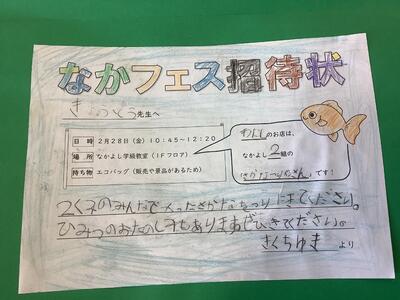 なかフェス招待状
きょうとう先生へ
日時 2月28日(金) 10:45~12:20
場所 なかよし学級教室(1Fフロア)
持ち物 エコバッグ(販売や景品があるため)
わたしのお店は、
なかよし2組の
さかなつりやさん です!
2くみのみんなでつくったさかなをつりにきてください。
ひみつのおたのしみもありますぜひきてください。
さくちゆき より